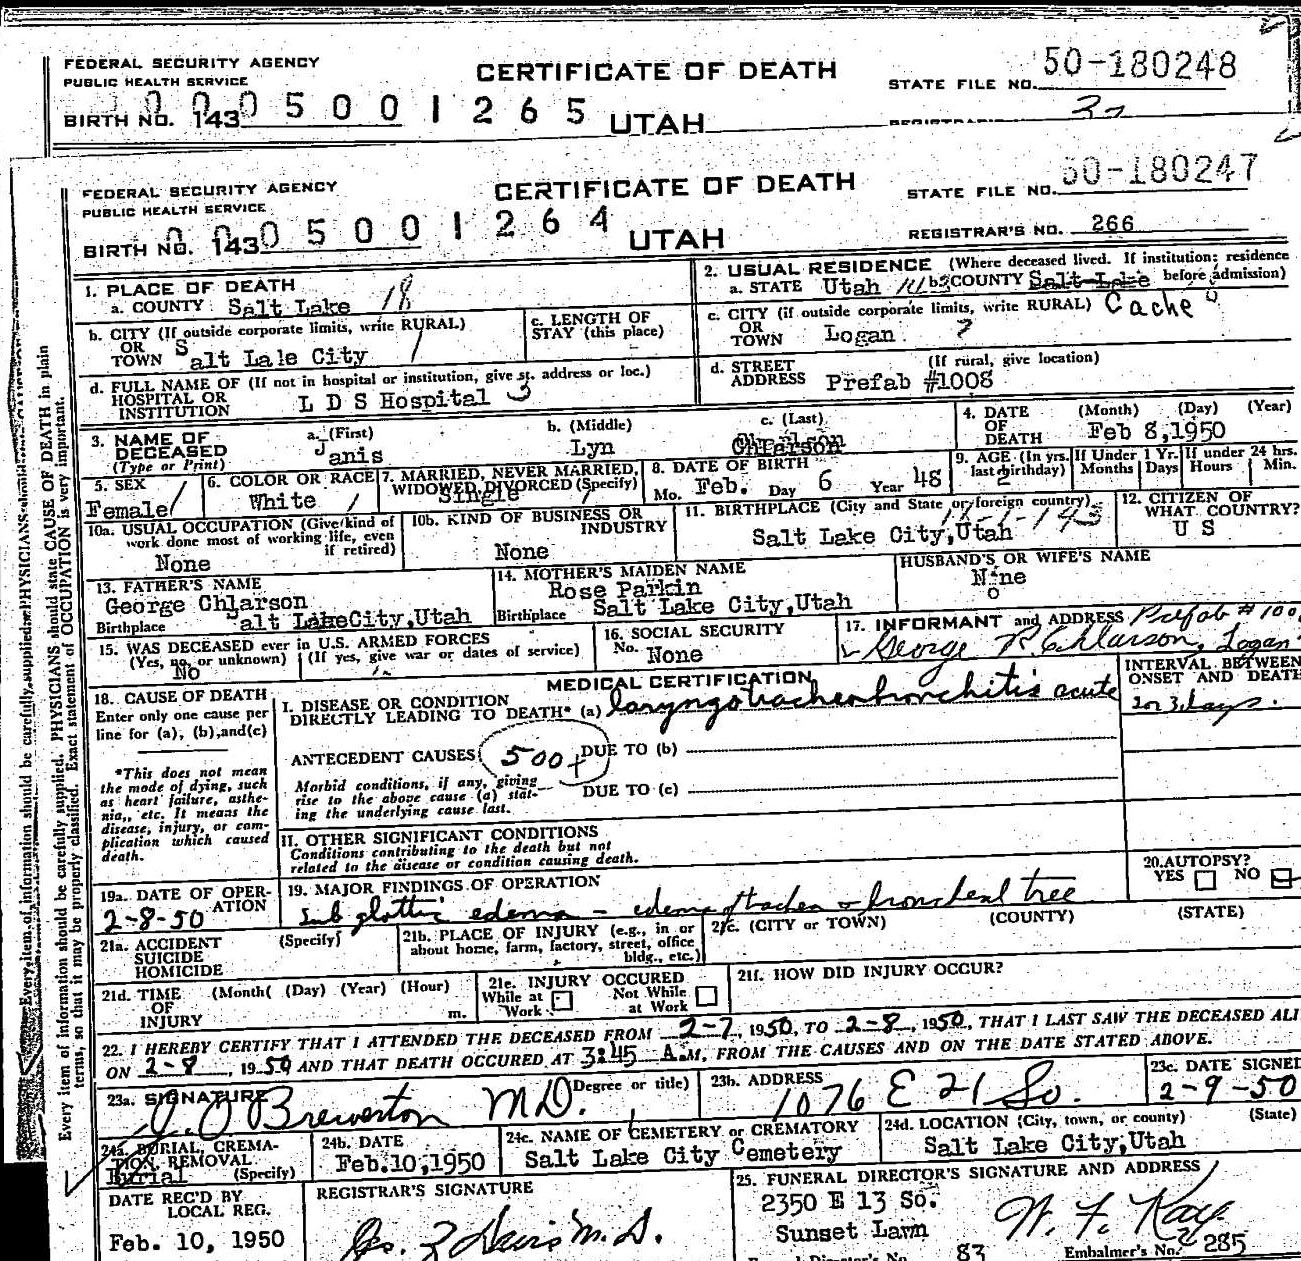 FEDERAL SECURITY AGENCY
PUBLIC HEALTH SERVICE
CERTIFICATE OF DEATH
STATE FILE NO. 50-180248
BIRTH NO. 143 0005001265
UTAH
FEDERAL SECURITY AGENCY
PUBLIC HEALTH SERVICE
CERTIFICATE OF DEATH
STATE FILE NO. 50-180247
BIRTH NO. 143 0005001264
UTAH
REGISTRAR'S NO. 266
1. PLACE OF DEATH
a. COUNTY Salt Lake 18
2. USUAL RESIDENCE (Where deceased lived. If institution: residence before admission)
a. STATE Utah b. COUNTY Salt Lake Cache
b. CITY (If outside corporate limits, write RURAL)
OR
TOWN Salt Lale City
c. LENGTH OF
STAY (this place)
c. CITY (if outside corporate limits, write RURAL)
OR
TOWN Logan
d. FULL NAME OF (If not in hospital or institution, give st. address or loc.)
HOSPITAL OR
INSTITUTION L D S Hospital 3
d. STREET
ADDRESS
(If rural, give location)
Prefab #1008
3. NAME OF
DECEASED
(Type or Print)
a. (First)
Janis
b. (Middle)
Lyn
c. (Last)
Chlarson
4. DATE
OF
DEATH
(Month) (Day) (Year)
Feb 8,1950
5. SEX
Female
6. COLOR OR RACE
White
7. MARRIED, NEVER MARRIED,
WIDOWED, DIVORCED (Specify)
Single
8. DATE OF BIRTH
Mo. Feb. Day 6 Year 48
9. AGE (In yrs. last birthday)
2
If Under 1 Yr.
Months Days
If under 24 hrs.
Hours Min.
10a. USUAL OCCUPATION (Give kind of
work done most of working life, even
if retired)
None
10b. KIND OF BUSINESS OR
INDUSTRY
None
11. BIRTHPLACE (City and State or foreign country)
Salt Lake City,Utah
12. CITIZEN OF
WHAT COUNTRY?
U S
13. FATHER'S NAME
George Chlarson
Birthplace Salt LakeCity,Utah
14. MOTHER'S MAIDEN NAME
Rose Parkin
Birthplace Salt Lake City,Utah
HUSBAND'S OR WIFE'S NAME
15. WAS DECEASED ever in U.S. ARMED FORCES
(Yes, no, or unknown) (If yes, give war or dates of service)
No
16. SOCIAL SECURITY
No. None
17. INFORMANT and ADDRESS Prefab # 100
George R. Chlarson, Logan
MEDICAL CERTIFICATION
INTERVAL BETWEEN
ONSET AND DEATH
18. CAUSE OF DEATH
Enter only one cause per
line for (a), (b),and(c)
I. DISEASE OR CONDITION
DIRECTLY LEADING TO DEATH* (a) laryngotracheobronchitis acute
2 or 3 days.
ANTECEDENT CAUSES 500+ DUE TO (b)
Morbid conditions, if any, giving
rise to the above cause (a) stat-
ing the underlying cause last.
DUE TO (c)
*This does not mean
the mode of dying, such
as heart failure, asthe-
nia,, etc. It means the
disease, injury, or com-
plication which caused
death.
II. OTHER SIGNIFICANT CONDITIONS
Conditions contributing to the death but not
related to the disease or condition causing death.
19a. DATE OF OPER-
ATION
2-8-50
19. MAJOR FINDINGS OF OPERATION
Sub glottic edema - edema of trachea & bronchial tree
20.AUTOPSY?
YES NO
21a. ACCIDENT
SUICIDE
HOMICIDE
(Specify)
21b. PLACE OF INJURY (e.g., in or
about home, farm, factory, street, office
bldg., etc.)
21c. (CITY OR TOWN) (COUNTY) (STATE)
21d. TIME
OF
INJURY
(Month( (Day) (Year) (Hour)
m.
21e. INJURY OCCURED
While at
Work
Not While
at Work
21f. HOW DID INJURY OCCUR?
22. I HEREBY CERTIFY THAT I ATTENDED THE DECEASED FROM 2-7, 1950, TO 2-8, 1950, THAT I LAST SAW THE DECEASED ALI
ON 2-8, 1950 AND THAT DEATH OCCURED AT 3:45 A.M, FROM THE CAUSES AND ON THE DATE STATED ABOVE.
23a. SIGNATURE (Degree or title)
J. O Brewerton M.D.
23b. ADDRESS
1076 E 21 So.
23c. DATE SIGNED
2-9-50
24a. BURIAL, CREMA-
TION, REMOVAL
(Specify)
Burial
24b. DATE
Feb.10,1950
24c. NAME OF CEMETERY or CREMATORY
Salt Lake City Cemetery
24d. LOCATION (City, town, or county) (State)
Salt Lake City,Utah
DATE REC'D BY
LOCAL REG.
Feb. 10, 1950
REGISTRAR'S SIGNATURE
25. FUNERAL DIRECTOR'S SIGNATURE AND ADDRESS
2350 E 13 So.
Sunset Lawn
W. F. Kay
83
Embalmer's No. 285
Every item of information should be carefully supplied. PHYSICIANS should state CAUSE OF DEATH in plain
terms, so that it may be properly classified. Exact statement of OCCUPATION is very important.